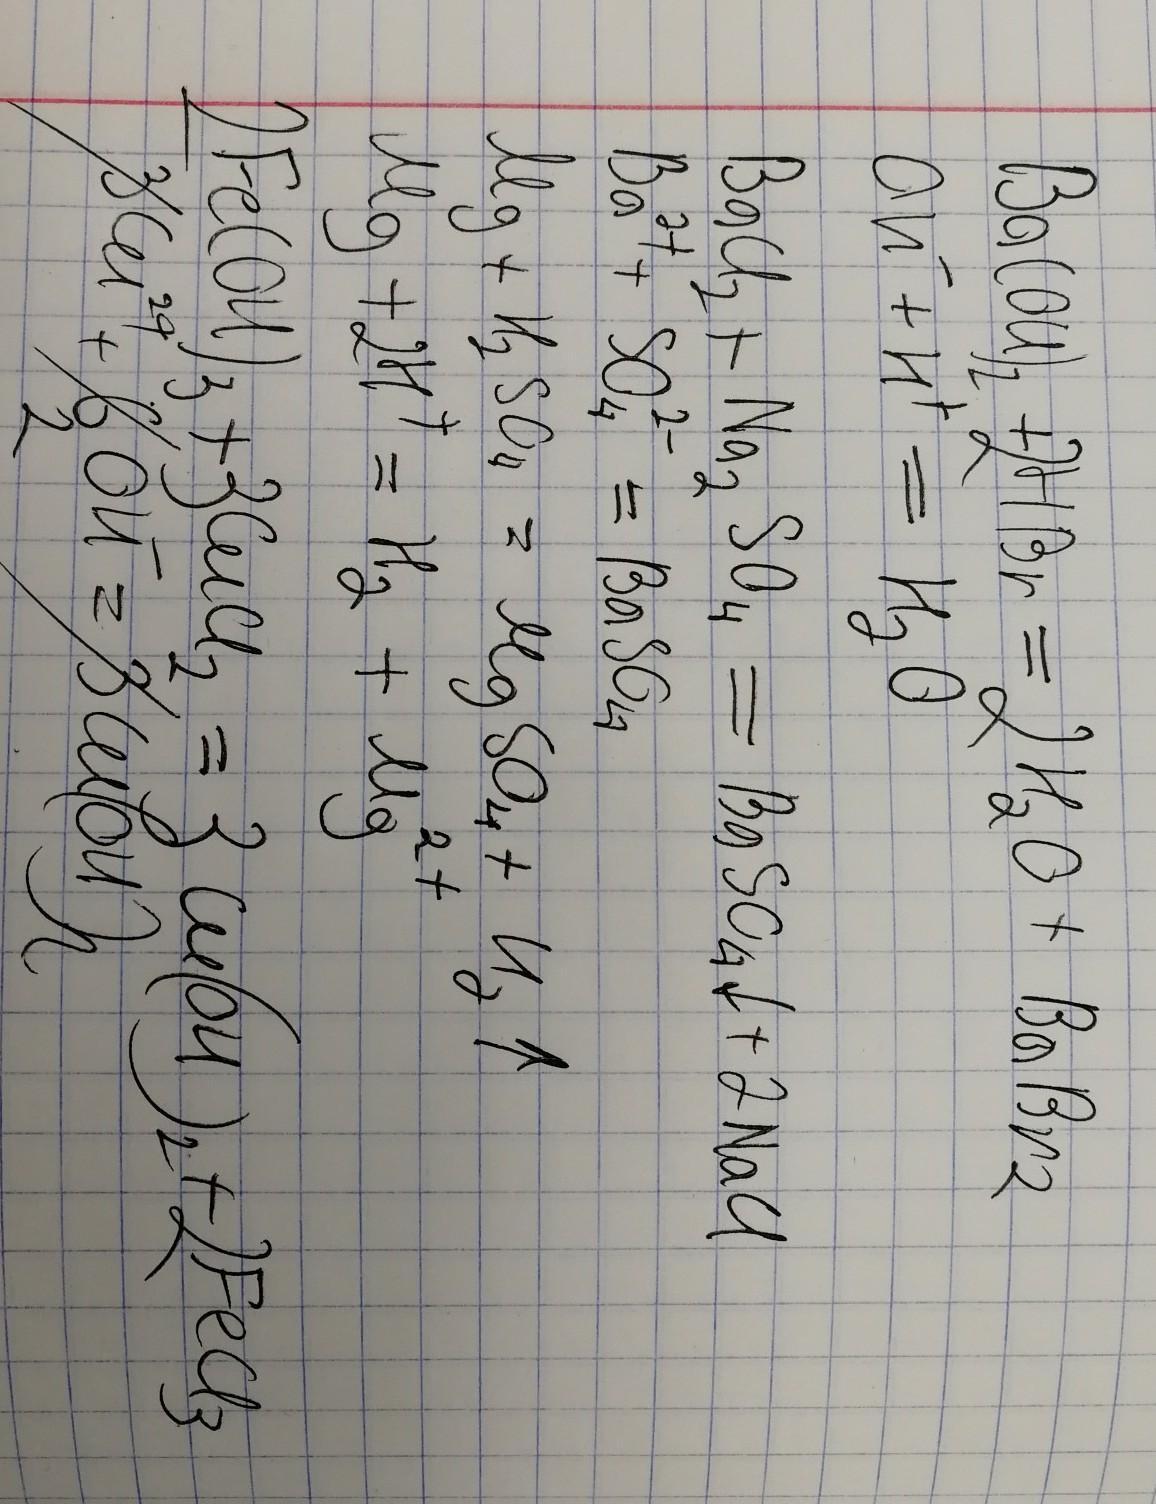 Ba(OH)₂ + 2HBr = 2H₂O + BaBr₂
OH⁻ + H⁺ = H₂O
BaCl₂ + Na₂SO₄ = BaSO₄↓ + 2NaCl
Ba²⁺ + SO₄²⁻ = BaSO₄
Mg + H₂SO₄ = MgSO₄ + H₂↑
Mg + 2H⁺ = H₂ + Mg²⁺
2Fe(OH)₃ + 3CuCl₂ = 3Cu(OH)₂ + 2FeCl₃
3Cu²⁺ + 6 2 OH⁻ = 3Cu(OH)₂